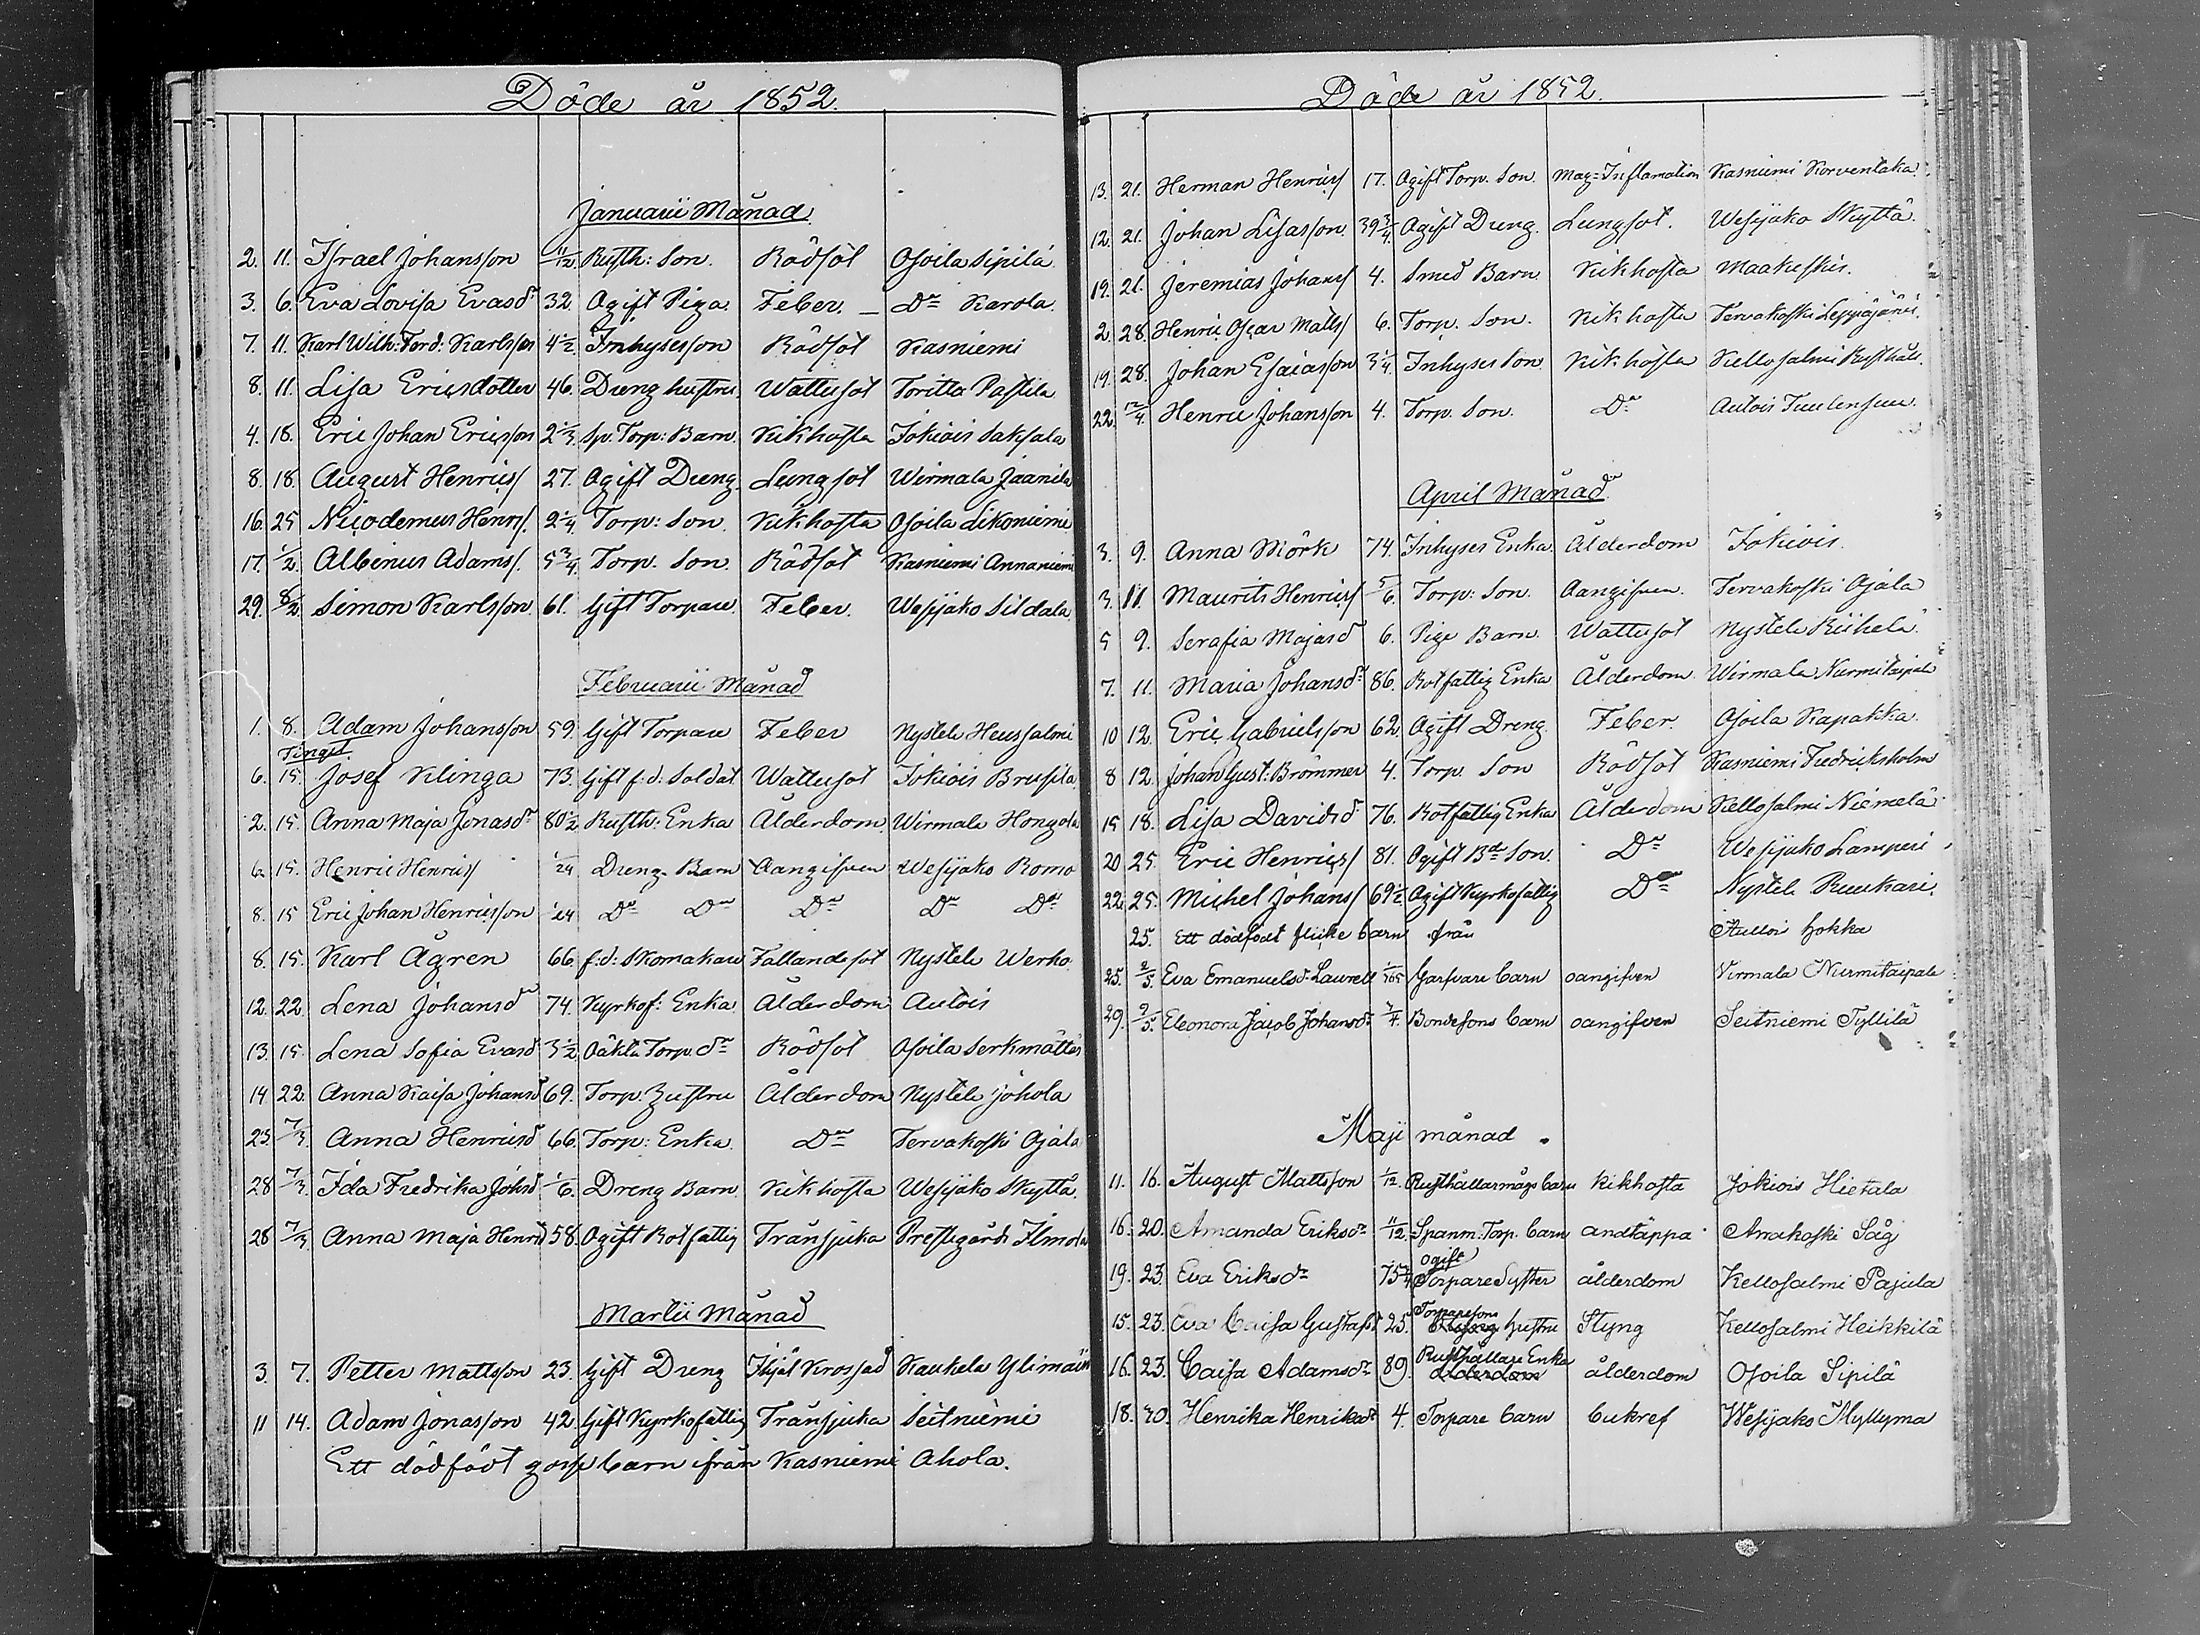 Döde år 1852.
Januarii Månad
2. 11. Israel Johansson 11/12 Rusth: Son. Rödsot Osoila Sipilä
3. 6. Eva Lovisa Evasdr 32. Ogift Piga. Feber. Do Karola.
7. 11. Karl Wilh: Ferd: Karlsson 4 1/2 Inhysesson Rödsot Kasniemi
8. 11. Lisa Ericsdotter 46. Dreng hustru Wattusot Toritto Pastila
4. 18. Eric Johan Ericsson 2 1/3 Sp. Torp: Barn. Kikhosta Jokiois Saksala
8. 18. August Henrics/ 27. Ogift Dreng. Lungsot Wirmala Jaanila
16. 25 Nicodemus Henrs/. 2 1/4 Torp: Son. Kikhosta Osoila Likoniemi
17. 1/2. Albinus Adams/. 5 3/4 Torp. Son. Rödsot Kasniemi Annaniemi
29. 8/2 Simon Karlsson 61. Gift Torpare Feber. Wesijako Sildala
Februarii Månad
1. 8. Adam Johansson 59. Gift Torpare Feber Nystele Heussalmi
Tingst.
6. 15. Josef Klinga 73. Gift f.d. Soldat Wattusot Jokiois Brusila
2. 15. Anna Maja Jonasdr 80 1/2 Rusth: Enka Ålderdom. Wirmala Hongola
6. 15. Henric Henrics/ 1/24 Dreng-Barn Oangifven Wesijako Romo
8. 15 Eric Johan Henricsson 1/24 Do Do Do Do Do
8. 15. Karl Ågren 66. f:d: Skomakare Fallandesot Nystele Werho
12. 22. Lena Johansdr 74. Kyrkof: Enka Ålderdom Autois
13. 15. Lena Sofia Evasd 3 1/2 Oäkta Torp. dr Rödsot Osoila Serkmattas
14 22. Anna Kaisa Johansd 69. Torp. Hustru Ålderdom Nystele Johola
23. 7/3. Anna Henricsd 66. Torp: Enka. Do Tervakoski Ojala
28 7/3. Ida Fredrika Johsd 1/6. Dreng Barn. Kikhosta Wesijako Skyttä.
28 7/3. Anna Maja Henrd 58. Ogift Rotfattig Trånsjuka Prestgårds Ilmola
Martii Månad
3. 7. Petter Mattsson 23. Gift Dreng Ihjäl Krossad Kaukela Ylimäin
11 14. Adam Jonasson 42. Gift Kyrkofattig Trånsjuka Seitniemi
Ett dödfödt gossbarn ifrån Kasniemi Ahola.
Döde år 1852.
13. 21. Herman Henrics/ 17. Ogift Torp. Son. Mag-Inflamation Kasniemi Korventaka.
12. 21. Johan Lisasson. 39 3/4. Ogift Dreng. Lungsot. Wesijako Skyttä.
19. 21. Jeremias Johans/ 4. Smed Barn Kikhosta Maakeskis.
2. 28. Henric Oscar Matts/ 6. Torp. Son. Kikhosta Tervakoski Leppäjärvi.
19. 28. Johan Esaiasson 3 1/4. Inhyses Son. Kikhosta Kellosalmi Rusthåll.
22. 12/4. Henric Johansson 4. Torp. Son. Do Autois Tuulensuu.
April Månad
3. 9. Anna Mörk 74. Inhyses Enka. Ålderdom Jokiois.
3. 11. Maurits Henrics/ 5/6. Torp: Son. Oangifven. Tervakoski Ojala
5 9. Serafia Majasd 6. Pige Barn. Wattusot Nystele Riihelä.
7. 11. Maria Johansdr 86. Rotfattig Enka Ålderdom. Wirmala Nurmitaipale
10 12. Eric Gabrielsson 62. Ogift Dreng. Feber. Osoila Kapakka.
8 12. Johan Gust: Brommer 4. Torp. Son Rödsot Kasniemi Fredriksholm
15 18. Lisa Davidsd 76. Rotfattig Enka Ålderdom Kellosalmi Niemelä
20 25. Eric Henrics/ 81. Ogift Bde Son. Do Wesijako Lamperi
22. 25. Michel Johans/ 69 1/2. Ogift Kyrkofattig Do Nystele Ruukari.
25. Ett dödfödt flicke barn från Autois Hokka
25. 2/5. Eva Emanuelsd. Laurell Garfvare barn oangifven Virmala Nurmitaipale
29. 2/5. Eleonora Jacob Johansdr Bondesons barn oangifven Seitniemi Tyllilä
Maji månad.
11. 16. August Mattsson 1/12. Rusthållarmågs barn kikhosta Jokiois Hietala
16. 20. Amanda Eriksdr 11/12. Spanm. Torp. barn andtäppa Arrakoski Såg
ogift
19. 23. Eva Eriksdr 75 3/4 Torpare Syster ålderdom Kellosalmi Pajula
Torparesons
15. 23. Eva Caisa Gustafsd 25. hustru Styng Kellosalmi Heikkilä
Rusthållare Enka
16. 23. Caisa Adamsdr 89. ålderdom ålderdom Osoila Sipilä
18. 30. Henrika Henriksdr 4. Torpare barn bukref Wesijako Myllymä